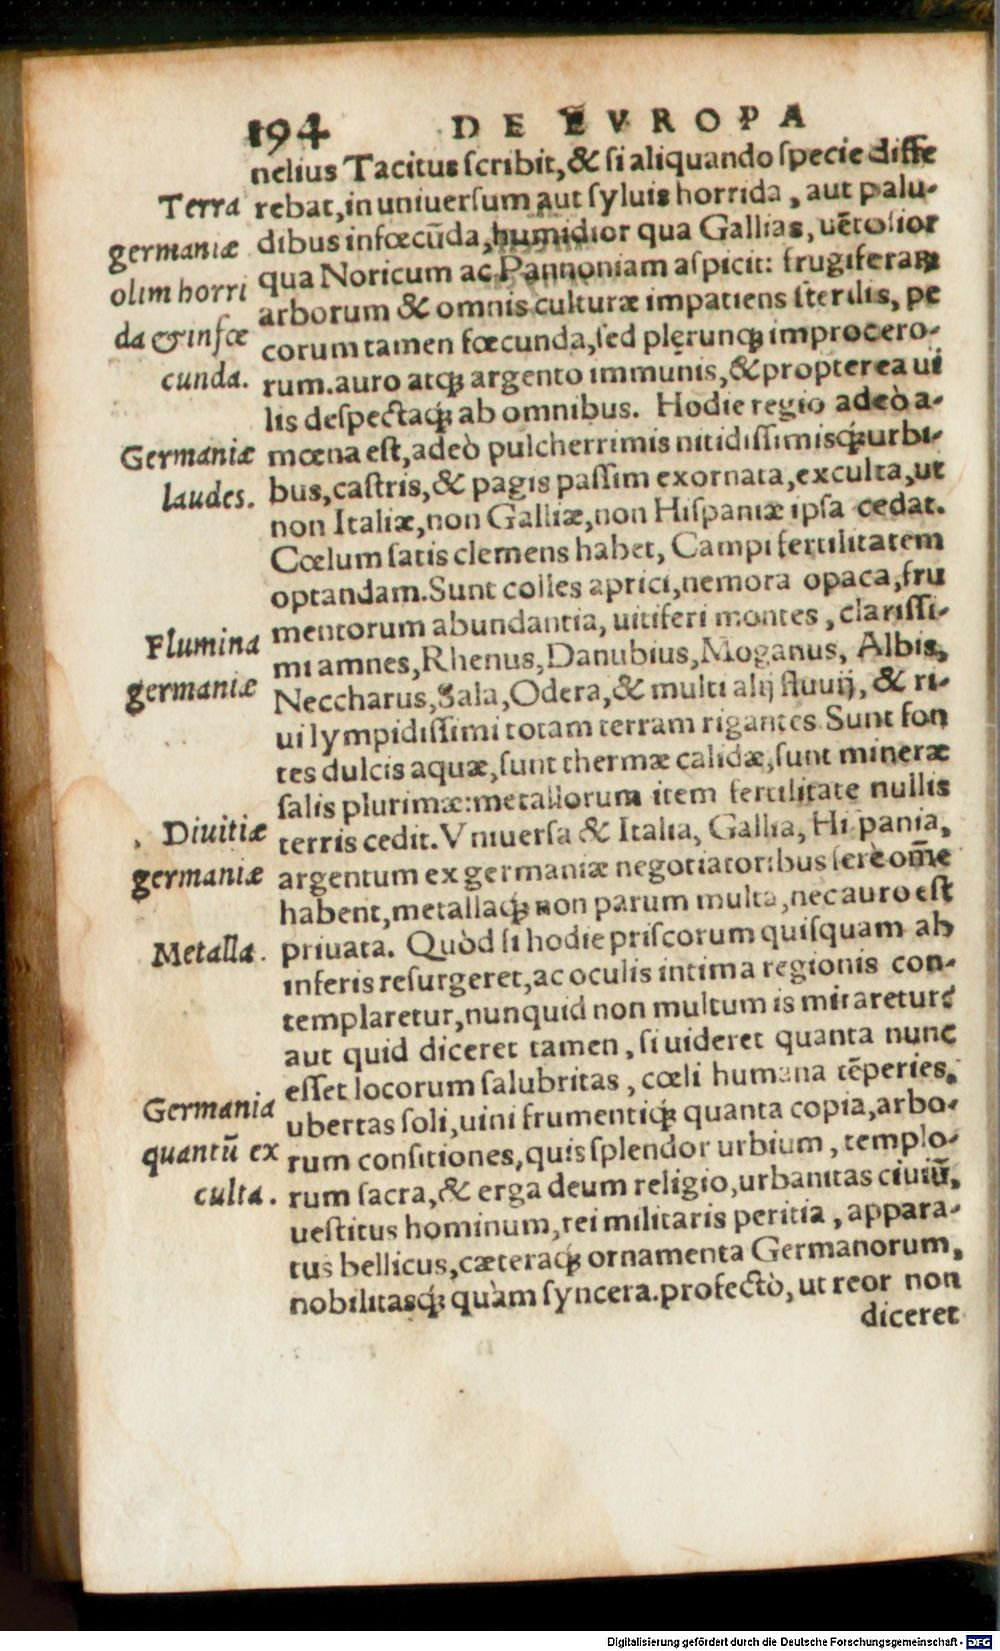 194 DE EVROPA
nelius Tacitus ſcribit, & ſi aliquando ſpecie diffe
rebat, in uniuerſum aut ſyluis horrida, aut palu-
dibus infœcūda, humidior qua Gallias, uētoſior
qua Noricum ac Pannoniam aſpicit: frugiferarū
arborum & omnis culturæ impatiens ſterilis, pe
corum tamen fœcunda, ſed plerunq; improcero-
rum. auro atq; argento immunis, & propterea ui
lis deſpectaq; ab omnibus. Hodie regio adeò a-
mœna eſt, adeò pulcherrimis nitidiſſimisq; urbi-
bus, caſtris, & pagis paſſim exornata, exculta, ut
non Italiæ, non Galliæ, non Hiſpaniæ ipſa cedat.
Cœlum ſatis clemens habet, Campi fertilitatem
optandam. Sunt colles aprici, nemora opaca, fru
mentorum abundantia, uitiferi montes, clariſſi-
mi amnes, Rhenus, Danubius, Moganus, Albis,
Neccharus, Sala, Odera, & multi alij fluuij, & ri-
ui lympidiſſimi totam terram rigantes. Sunt fon
tes dulcis aquæ, ſunt thermæ calidæ, ſunt mineræ
ſalis plurimæ: metallorum item fertilitate nullis
terris cedit. Vniuerſa & Italia, Gallia, Hiſpania,
argentum ex germaniæ negotiatoribus ferè om̄e
habent, metallaq; non parum multa, nec auro eſt
priuata. Quòd ſi hodie priſcorum quiſquam ab
inferis reſurgeret, ac oculis intima regionis con-
templaretur, nunquid non multum is miraretur?
aut quid diceret tamen, ſi uideret quanta nunc
eſſet locorum ſalubritas, cœli humana tēperies,
ubertas ſoli, uini frumentiq; quanta copia, arbo-
rum conſitiones, quis ſplendor urbium, templo-
rum ſacra, & erga deum religio, urbanitas ciuiū,
ueſtitus hominum, rei militaris peritia, appara-
tus bellicus, cæteraq; ornamenta Germanorum,
nobilitasq; quàm ſyncera. profectò, ut reor non
diceret
Terra
germaniæ
olim horri
da & infœ
cunda.
Germaniæ
laudes.
Flumina
germaniæ
Diuitiæ
germaniæ
Metalla.
Germania
quantū ex
culta.
Digitalisierung gefördert durch die Deutsche Forschungsgemeinschaft - DFG